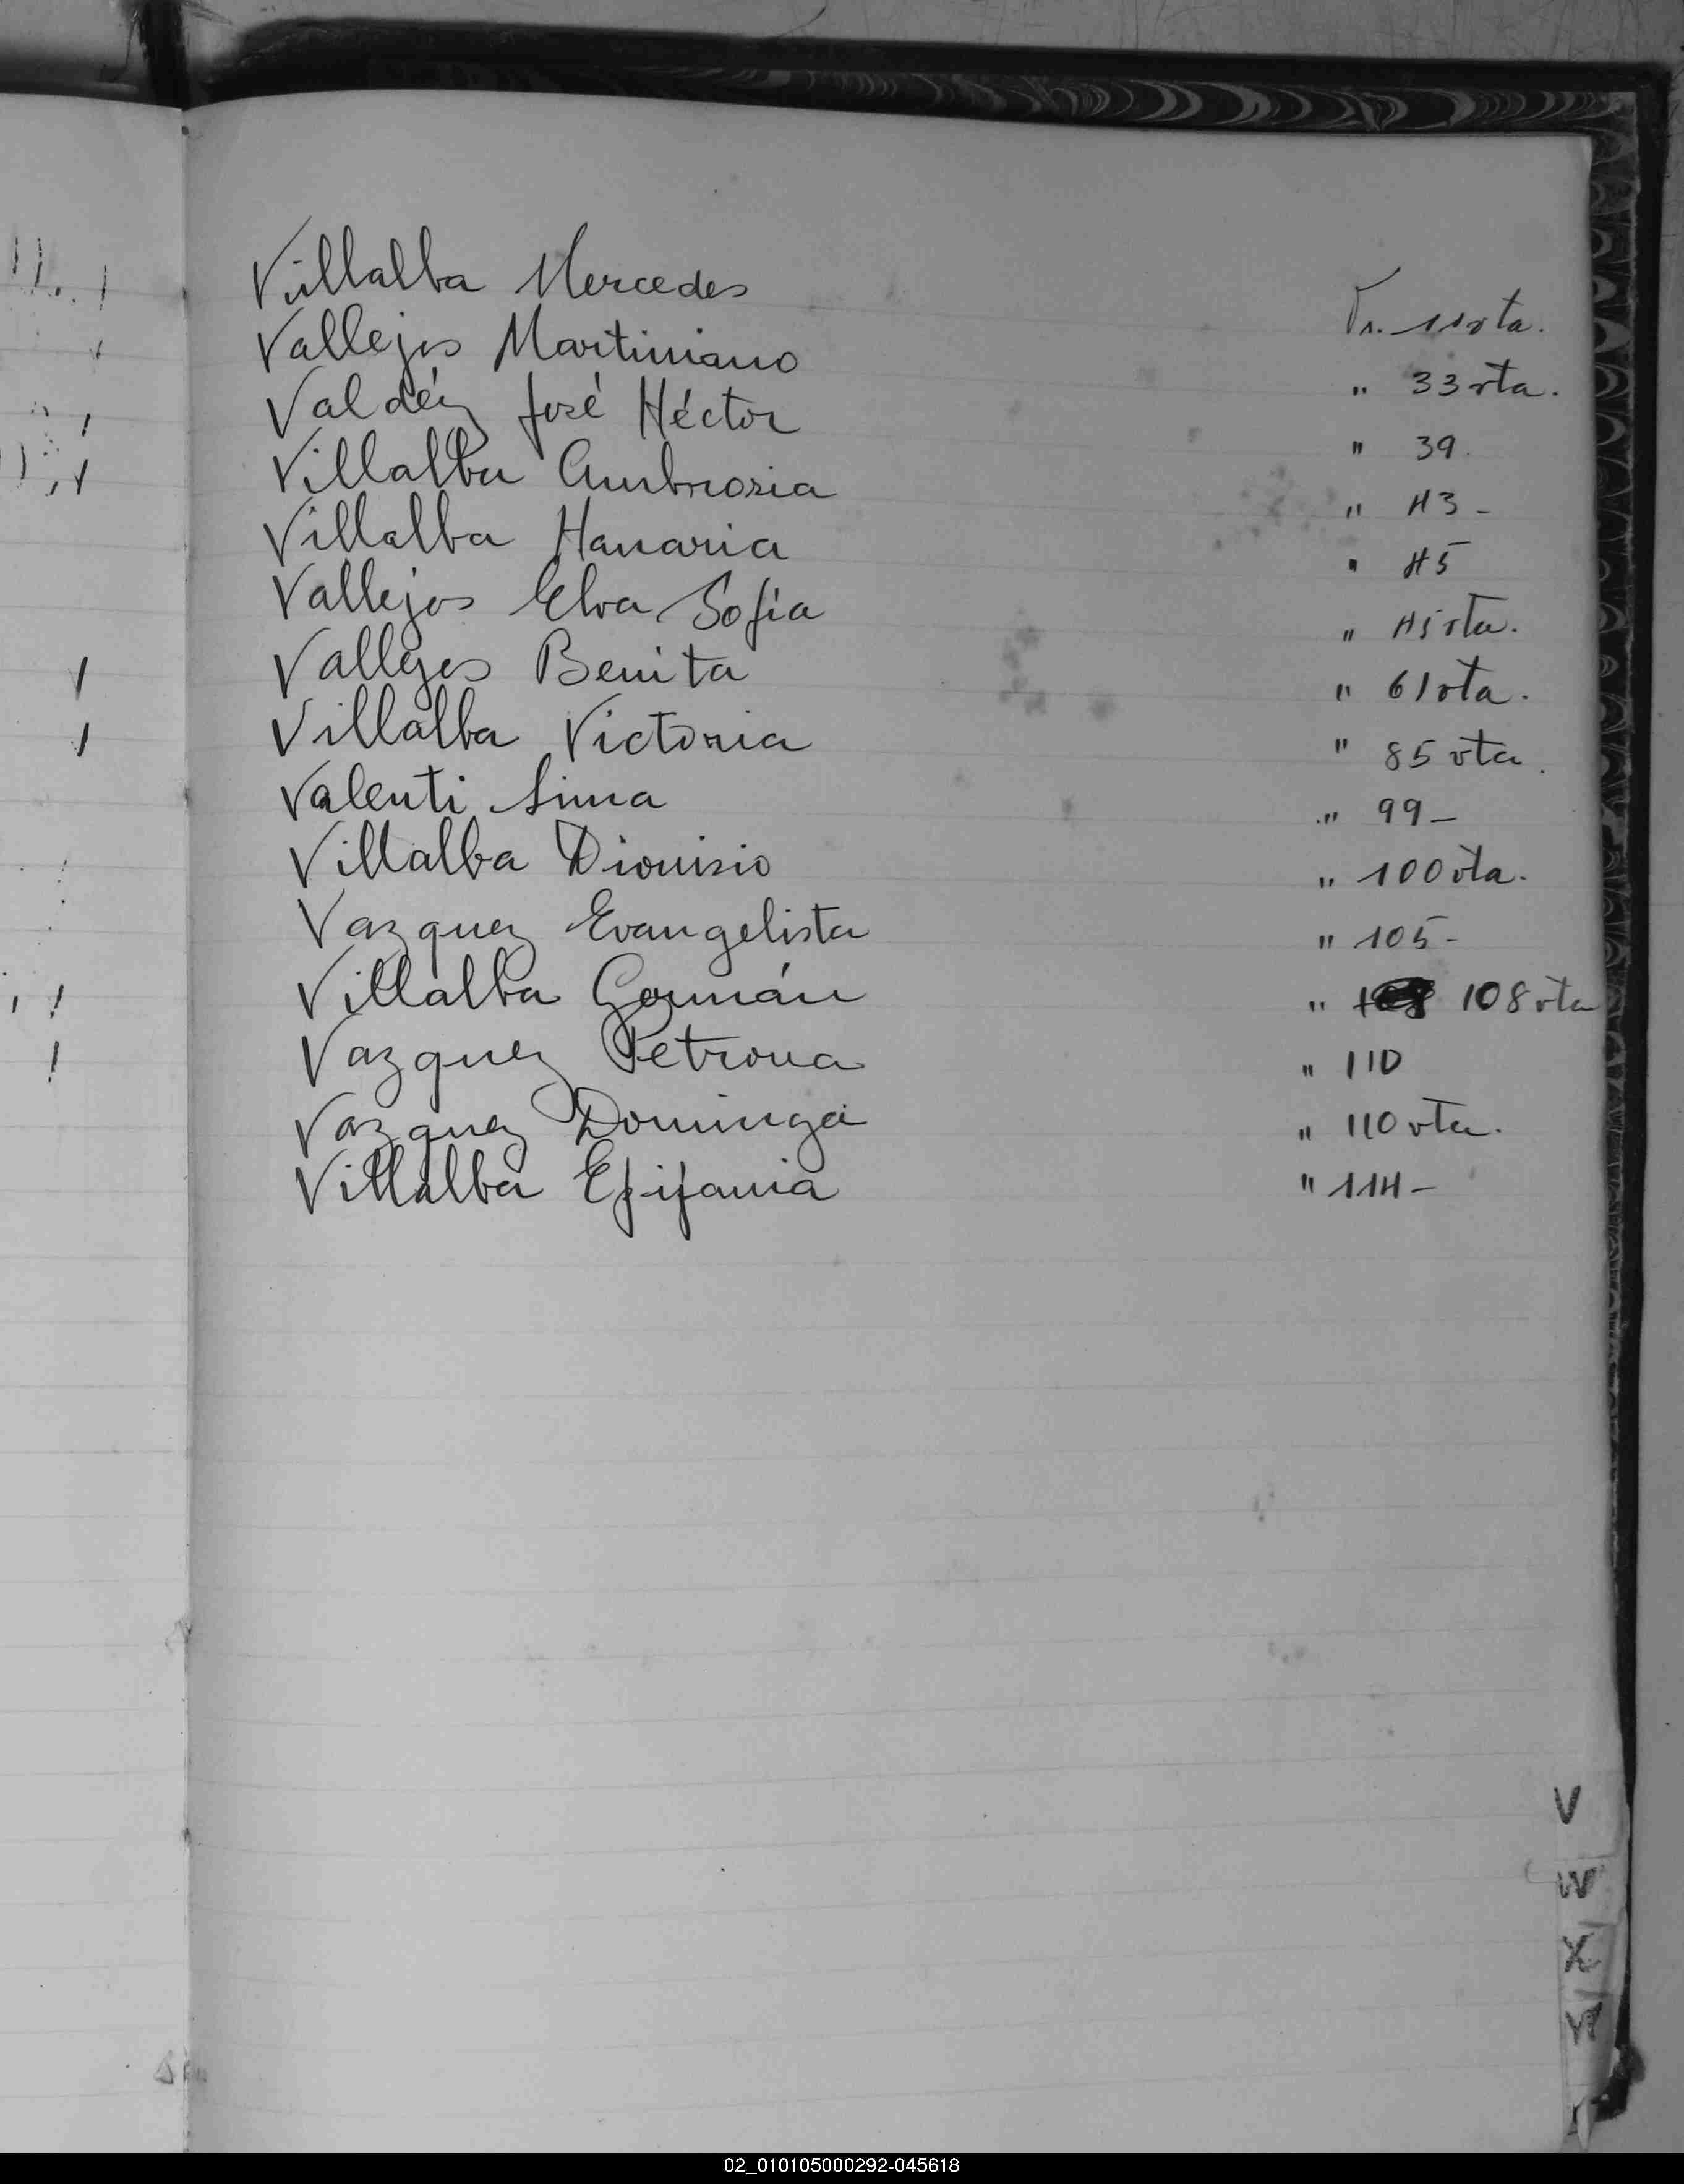 Villalba Mercedes Fs. 11 vta.
Vallejos Martiniano " 33 vta.
Valdéz José Héctor " 39.
Villalba Ambrosia " 43 -
Villalba Hanaria " 45
Vallejos Elva Sofía " 45 vta.
Vallejos Benita " 61 vta.
Villalba Victoria " 85 vta.
Valenti " 99 -
Villalba Dionisio " 100 vta.
Vazquez Evangelista " 105 -
Villalba Germán " 108 vta
Vazquez Petrona " 110
Vazquez Dominga " 110 vta.
Villalba Epifania " 114 -
V
W
X
Y
02_010105000292-045618